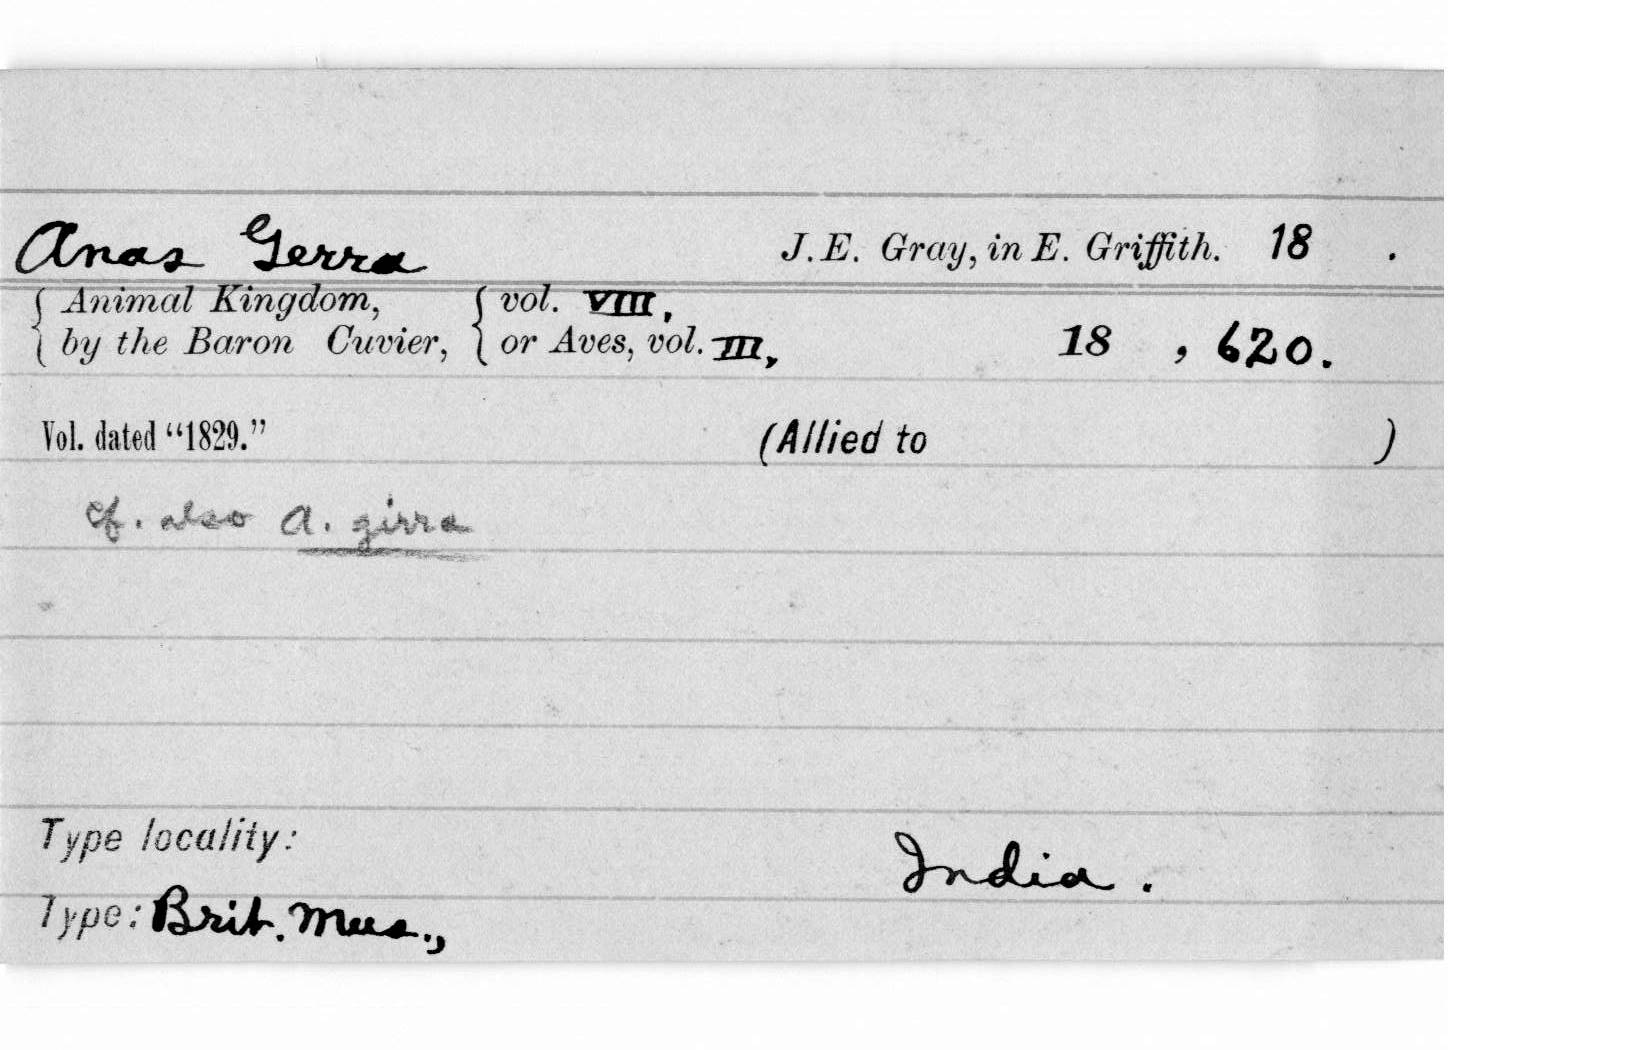 Anas Gerra J.E. Gray, in E. Griffith. 18 .
{ Animal Kingdom, { vol. VIII,
by the Baron Cuvier, or Aves, vol. III, 18 , 620.
Vol. dated “1829.” (Allied to )
cf. also A. girra
Type locality: India.
Type: Brit. Mus.,